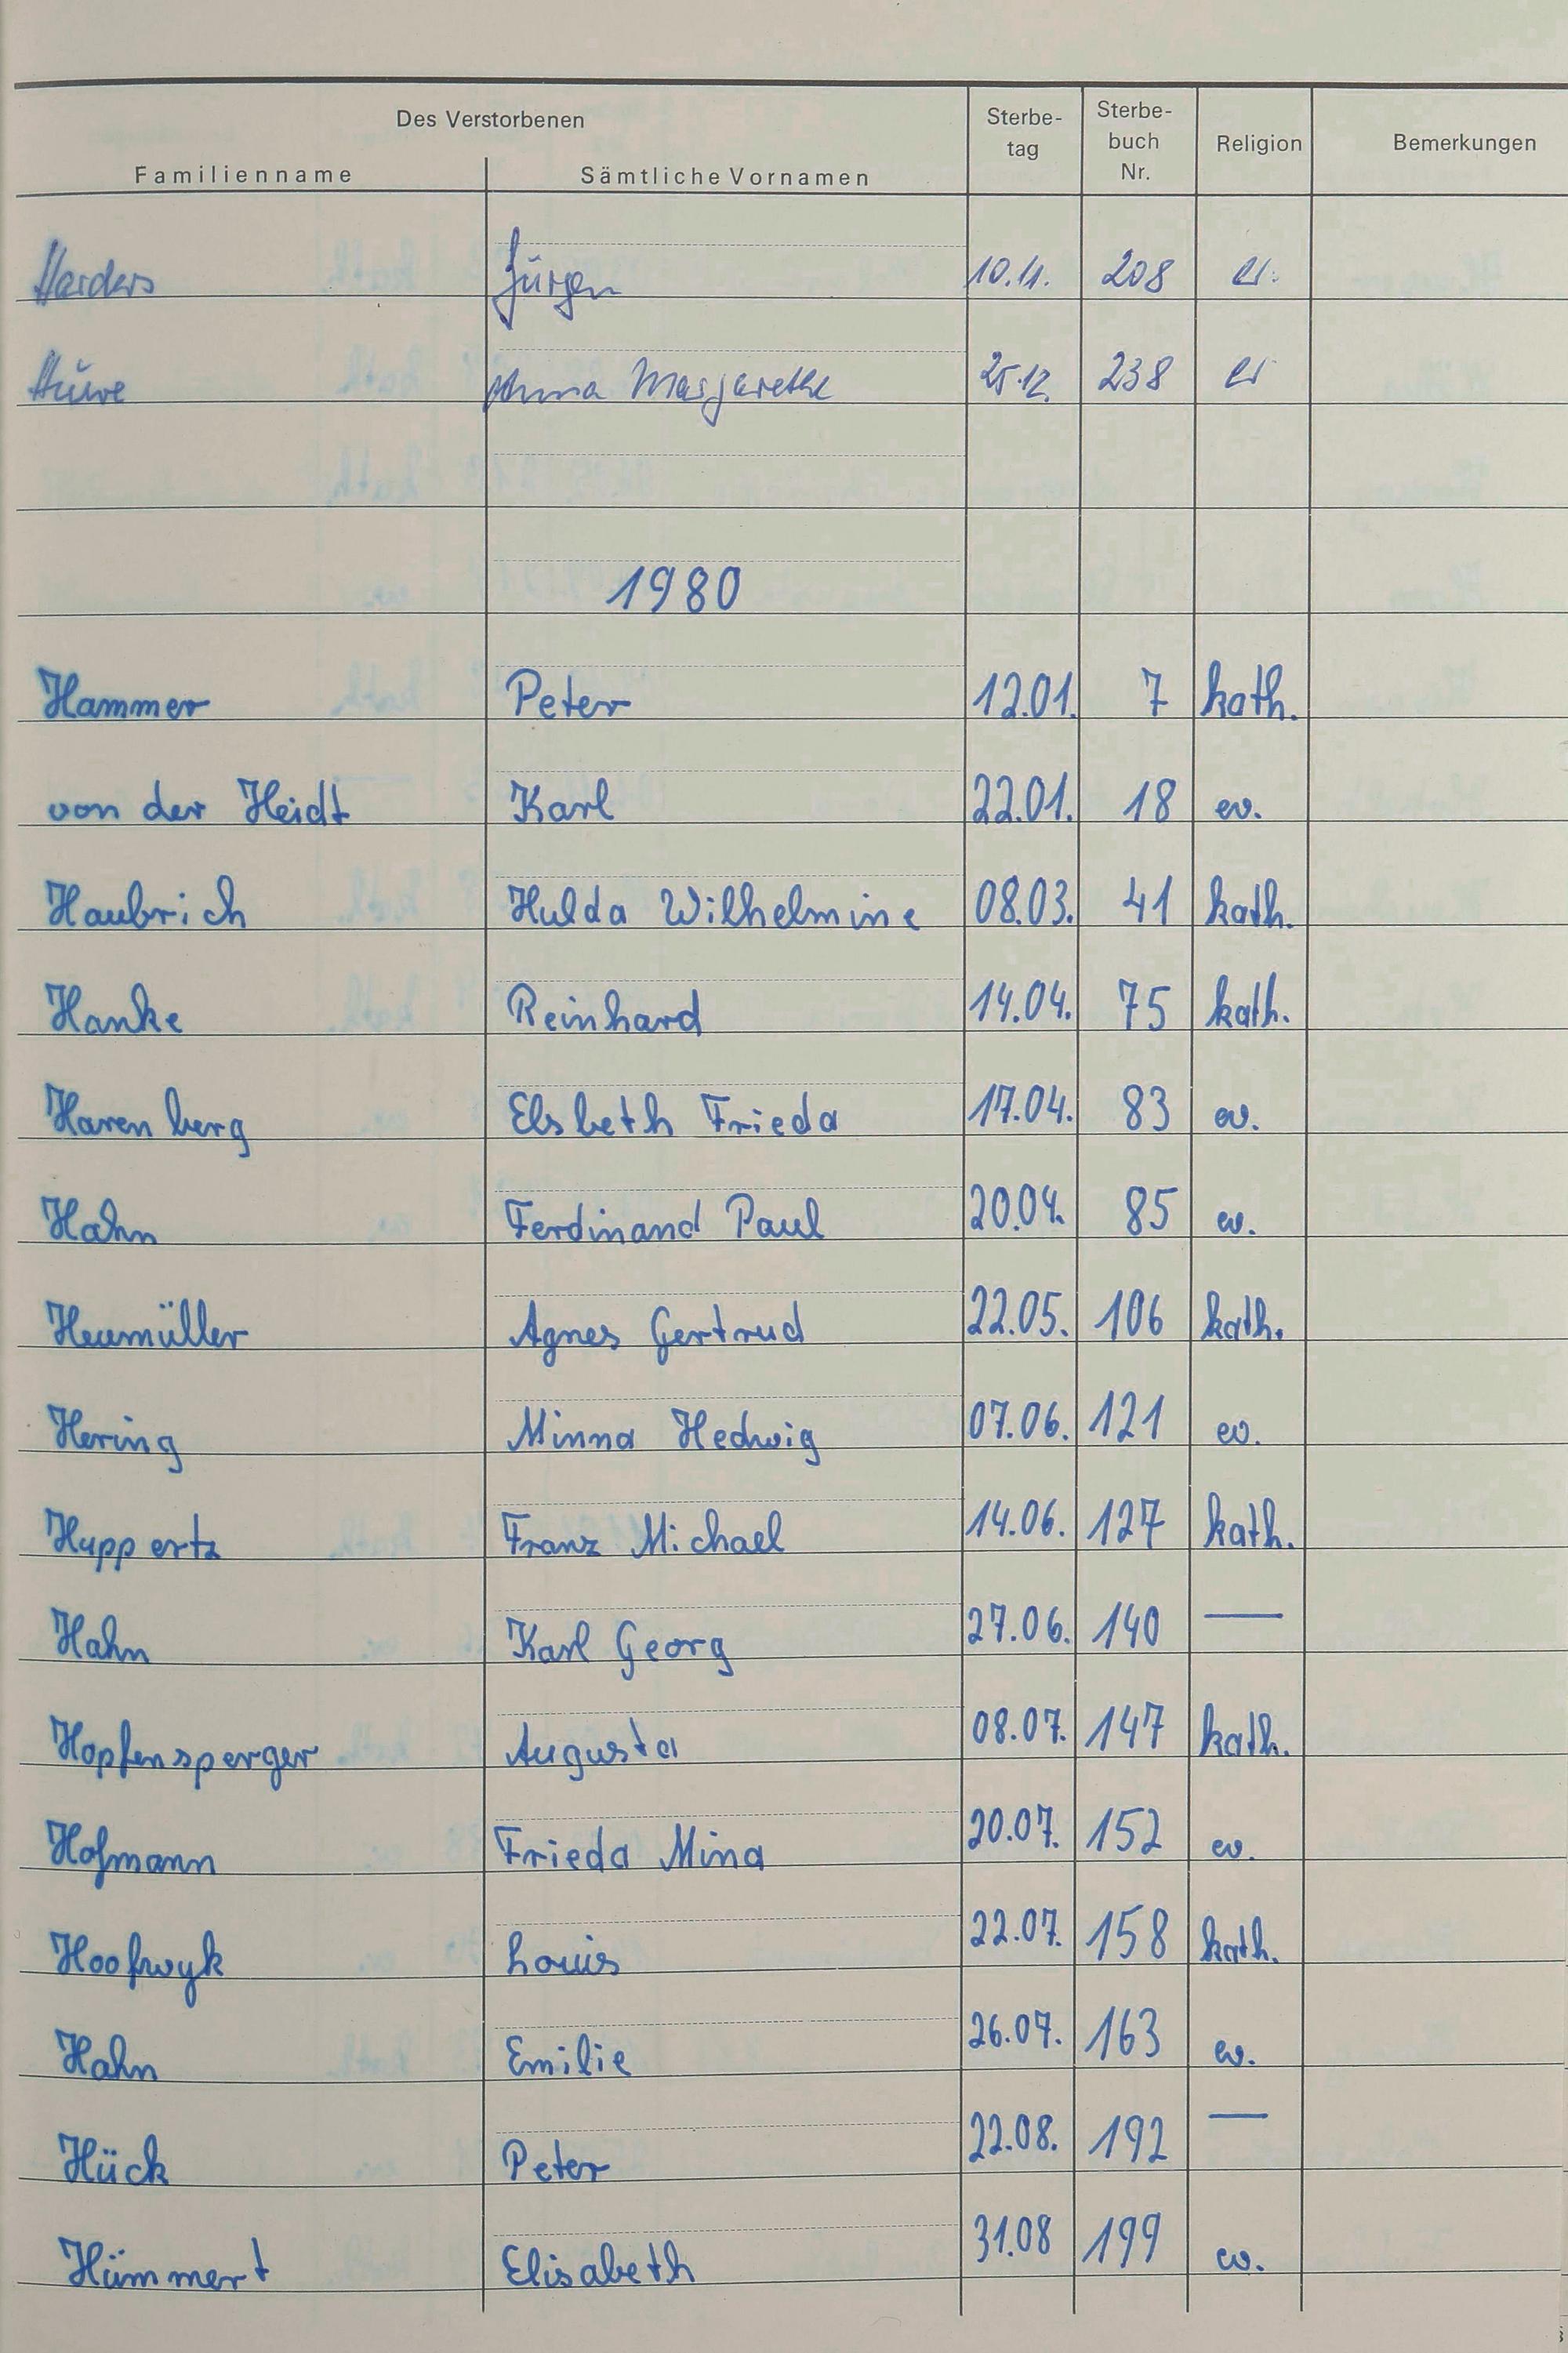 Des Verstorbenen
Familienname Sämtliche Vornamen Sterbe-tag Sterbe-buch Nr. Religion Bemerkungen
Harders Jürgen 10.11. 208 ev.
Hüwe Anna Margarethe 25.12. 238 ev
1980
Hammer Peter 12.01. 7 kath.
von der Heidt Karl 22.01. 18 ev.
Haubrich Hulda Wilhelmine 08.03. 41 kath.
Hanke Reinhard 14.04. 75 kath.
Harenberg Elsbeth Frieda 17.04. 83 ev.
Hahn Ferdinand Paul 20.04. 85 ev.
Heumüller Agnes Gertrud 22.05. 106 kath.
Hering Minna Hedwig 07.06. 121 ev.
Huppertz Franz Michael 14.06. 127 kath.
Hahn Karl Georg 27.06. 140 —
Hopfensperger Augusta 08.07. 147 kath.
Hofmann Frieda Mina 20.07. 152 ev.
Hoofwyk Louis 22.07. 158 kath.
Hahn Emilie 26.07. 163 ev.
Hück Peter 22.08. 192 —
Hümmert Elisabeth 31.08 199 ev.